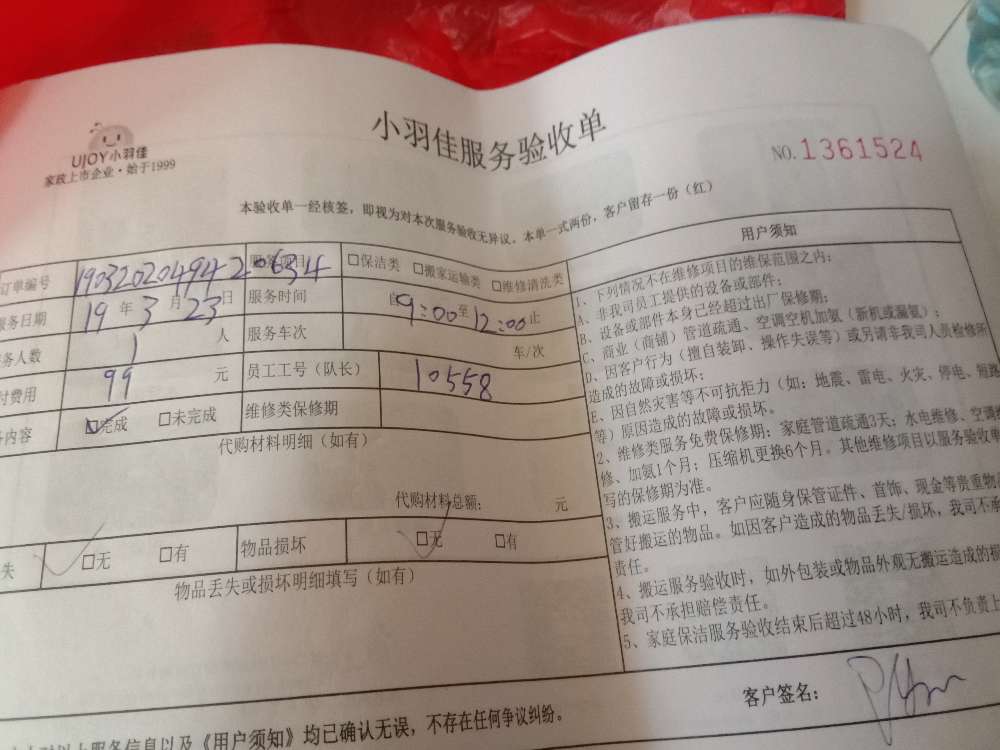 小羽佳服务验收单
UJOY小羽佳
家政上市企业·始于1999
NO.1361524
本验收单一经核签，即视为对本次服务验收无异议。本单一式两份，客户留存一份（红）
订单编号 190320204942 0634
□保洁类 □搬家运输类 □维修清洗类
服务日期 19年3月23日 服务时间 自9:00至12:00止
务人数 1人 服务车次 车/次
付费用 99元 员工工号（队长） 10558
务内容 □完成 □未完成 维修类保修期
代购材料明细（如有）
代购材料总额： 元
失 □无 □有 物品损坏 □无 □有
物品丢失或损坏明细填写（如有）
用户须知
1、下列情况不在维修项目的维保范围之内：
A、非我司员工提供的设备或部件；
B、设备或部件本身已经超过出厂保修期；
C、商业（商铺）管道疏通、空调空机加氨（新机或漏氨）；
D、因客户行为（擅自装卸、操作失误等）或另请非我司人员检修所
造成的故障或损坏；
E、因自然灾害等不可抗拒力（如：地震、雷电、火灾、停电、短路
等）原因造成的故障或损坏。
2、维修类服务免费保修期：家庭管道疏通3天；水电维修、空调
修、加氨1个月；压缩机更换6个月。其他维修项目以服务验收单
写的保修期为准。
3、搬运服务中，客户应随身保管证件、首饰、现金等贵重物品
管好搬运的物品。如因客户造成的物品丢失/损坏，我司不承
责任。
4、搬运服务验收时，如外包装或物品外观无搬运造成的
我司不承担赔偿责任。
5、家庭保洁服务验收结束后超过48小时，我司不负责上
客户签名：
对以上服务信息以及《用户须知》均已确认无误，不存在任何争议纠纷。